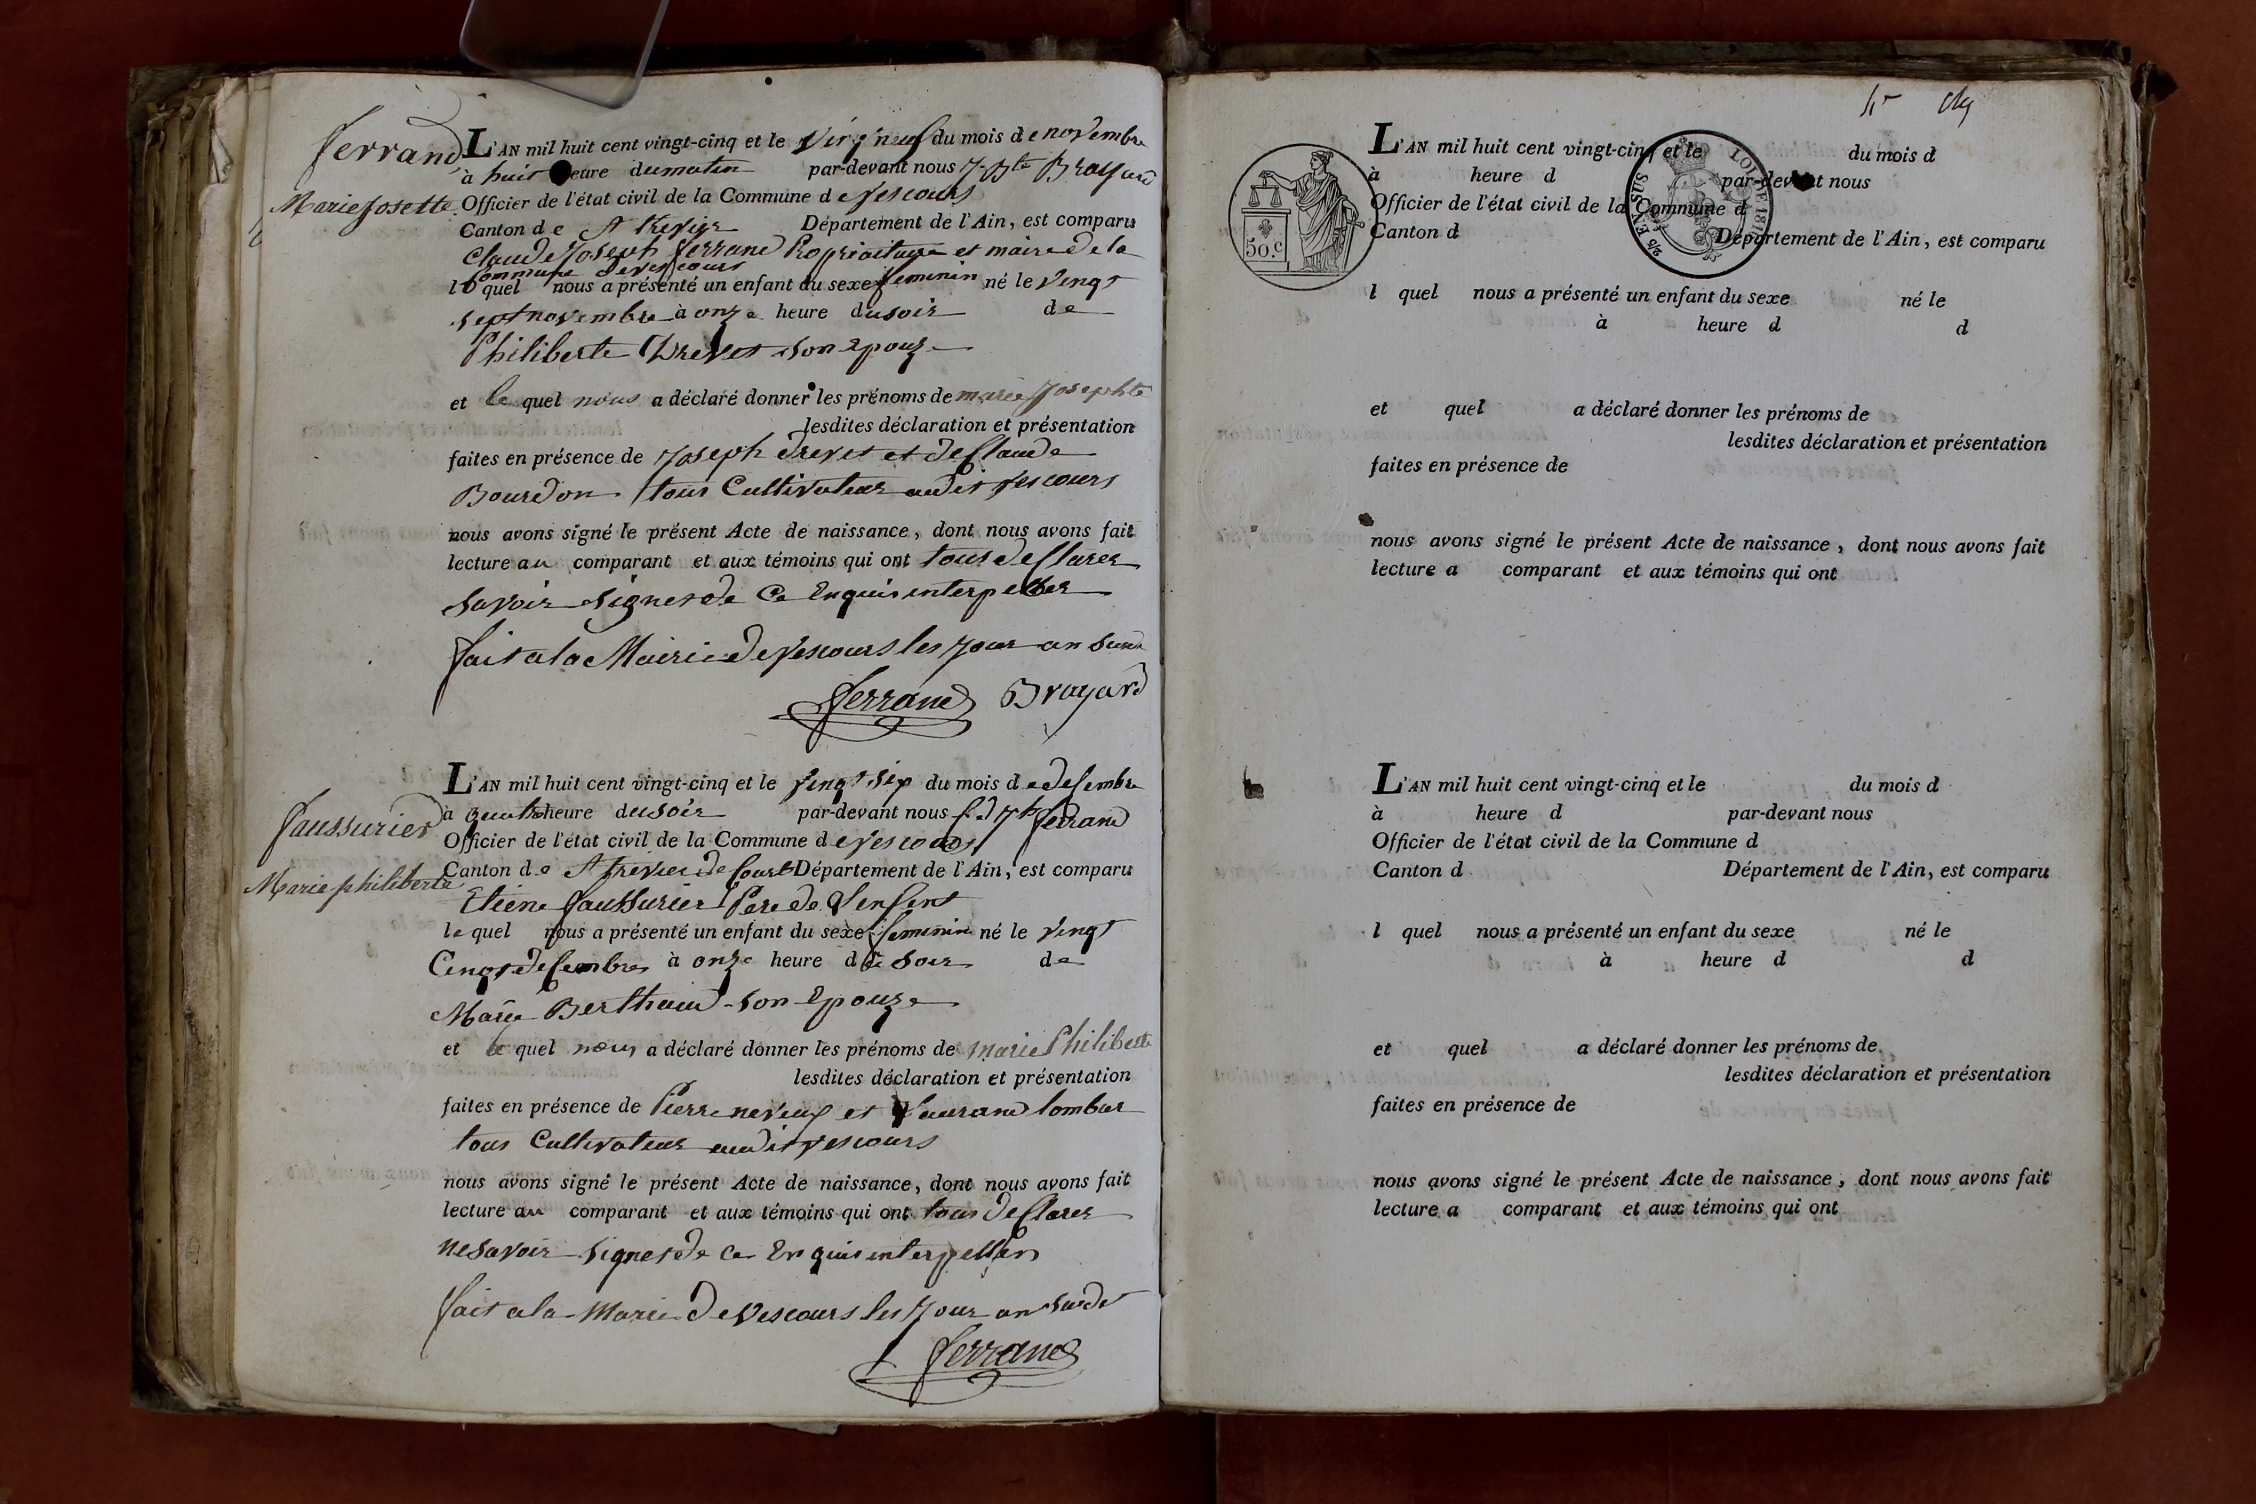 ferrand
Marie Josette
L'AN mil huit cent vingt-cinq et le vingt neuf du mois de novembre
à huit heure du matin par-devant nous J Bte Brayard
Officier de l'état civil de la Commune de vescours
Canton de St trevier Département de l'Ain, est comparu
Claude Joseph ferrand Propriaitaire et maire de la
Commune de vescours
le quel nous a présenté un enfant du sexe feminin né le vengt
sept novembre à onze heure du soir de
Philiberte Drevet son Epouze
et le quel nous a déclaré donner les prénoms de marie Josephte
lesdites déclaration et présentation
faites en présence de Joseph drevet et de Claude
Bourdon tous Cultivateur audit vescours
nous avons signé le présent Acte de naissance, dont nous avons fait
lecture au comparant et aux témoins qui ont tous de Clarer
Savoir Signer de Ce Enquis interpeller
fait a la Mairie de vescours les Jour an Susd
ferrand Brayard
faussurier
Marie philiberte
L'AN mil huit cent vingt-cinq et le vengt six du mois de desembre
à quatre heure du soir par-devant nous Cd Jh ferrand
Officier de l'état civil de la Commune de vescours
Canton de St trevier de Court Département de l'Ain, est comparu
Etiene faussurier Pere de Lenfent
le quel nous a présenté un enfant du sexe feminin né le vengt
Cenqt desembre à onze heure de Soir de
Marie Berthaud son Epouze
et le quel nous a déclaré donner les prénoms de marie Philiberte
lesdites déclaration et présentation
faites en présence de Pierre neveux et Laurand lombar
tous Cultivateur audit vescours
nous avons signé le présent Acte de naissance, dont nous avons fait
lecture au comparant et aux témoins qui ont tous de Clarer
ne Savoir Signer de Ce Enquis interpeller
fait a la Marie de vescours les Jour an Susdit
ferrand
L'AN mil huit cent vingt-cinq et le du mois d
à heure d par-devant nous
Officier de l'état civil de la Commune d
Canton d Département de l'Ain, est comparu
50.c
LOI DE 1816
l quel nous a présenté un enfant du sexe né le
à heure d d
et quel a déclaré donner les prénoms de
lesdites déclaration et présentation
faites en présence de
nous avons signé le présent Acte de naissance, dont nous avons fait
lecture a comparant et aux témoins qui ont
L'AN mil huit cent vingt-cinq et le du mois d
à heure d par-devant nous
Officier de l'état civil de la Commune d
Canton d Département de l'Ain, est comparu
l quel nous a présenté un enfant du sexe né le
à heure d d
et quel a déclaré donner les prénoms de
lesdites déclaration et présentation
faites en présence de
nous avons signé le présent Acte de naissance, dont nous avons fait
lecture a comparant et aux témoins qui ont